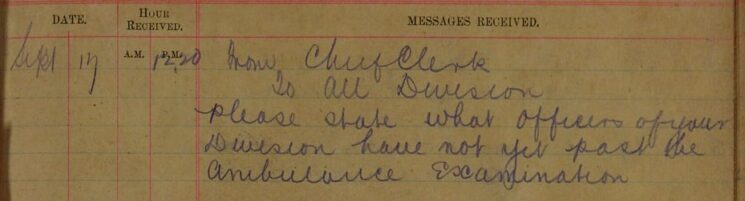 DATE. HOUR RECEIVED. MESSAGES RECEIVED.
Sept 17 A.M. P.M. 12.20 From Chief Clerk
To All Division
Please state what Officers of your
Division have not yet past the
Ambulance Examination